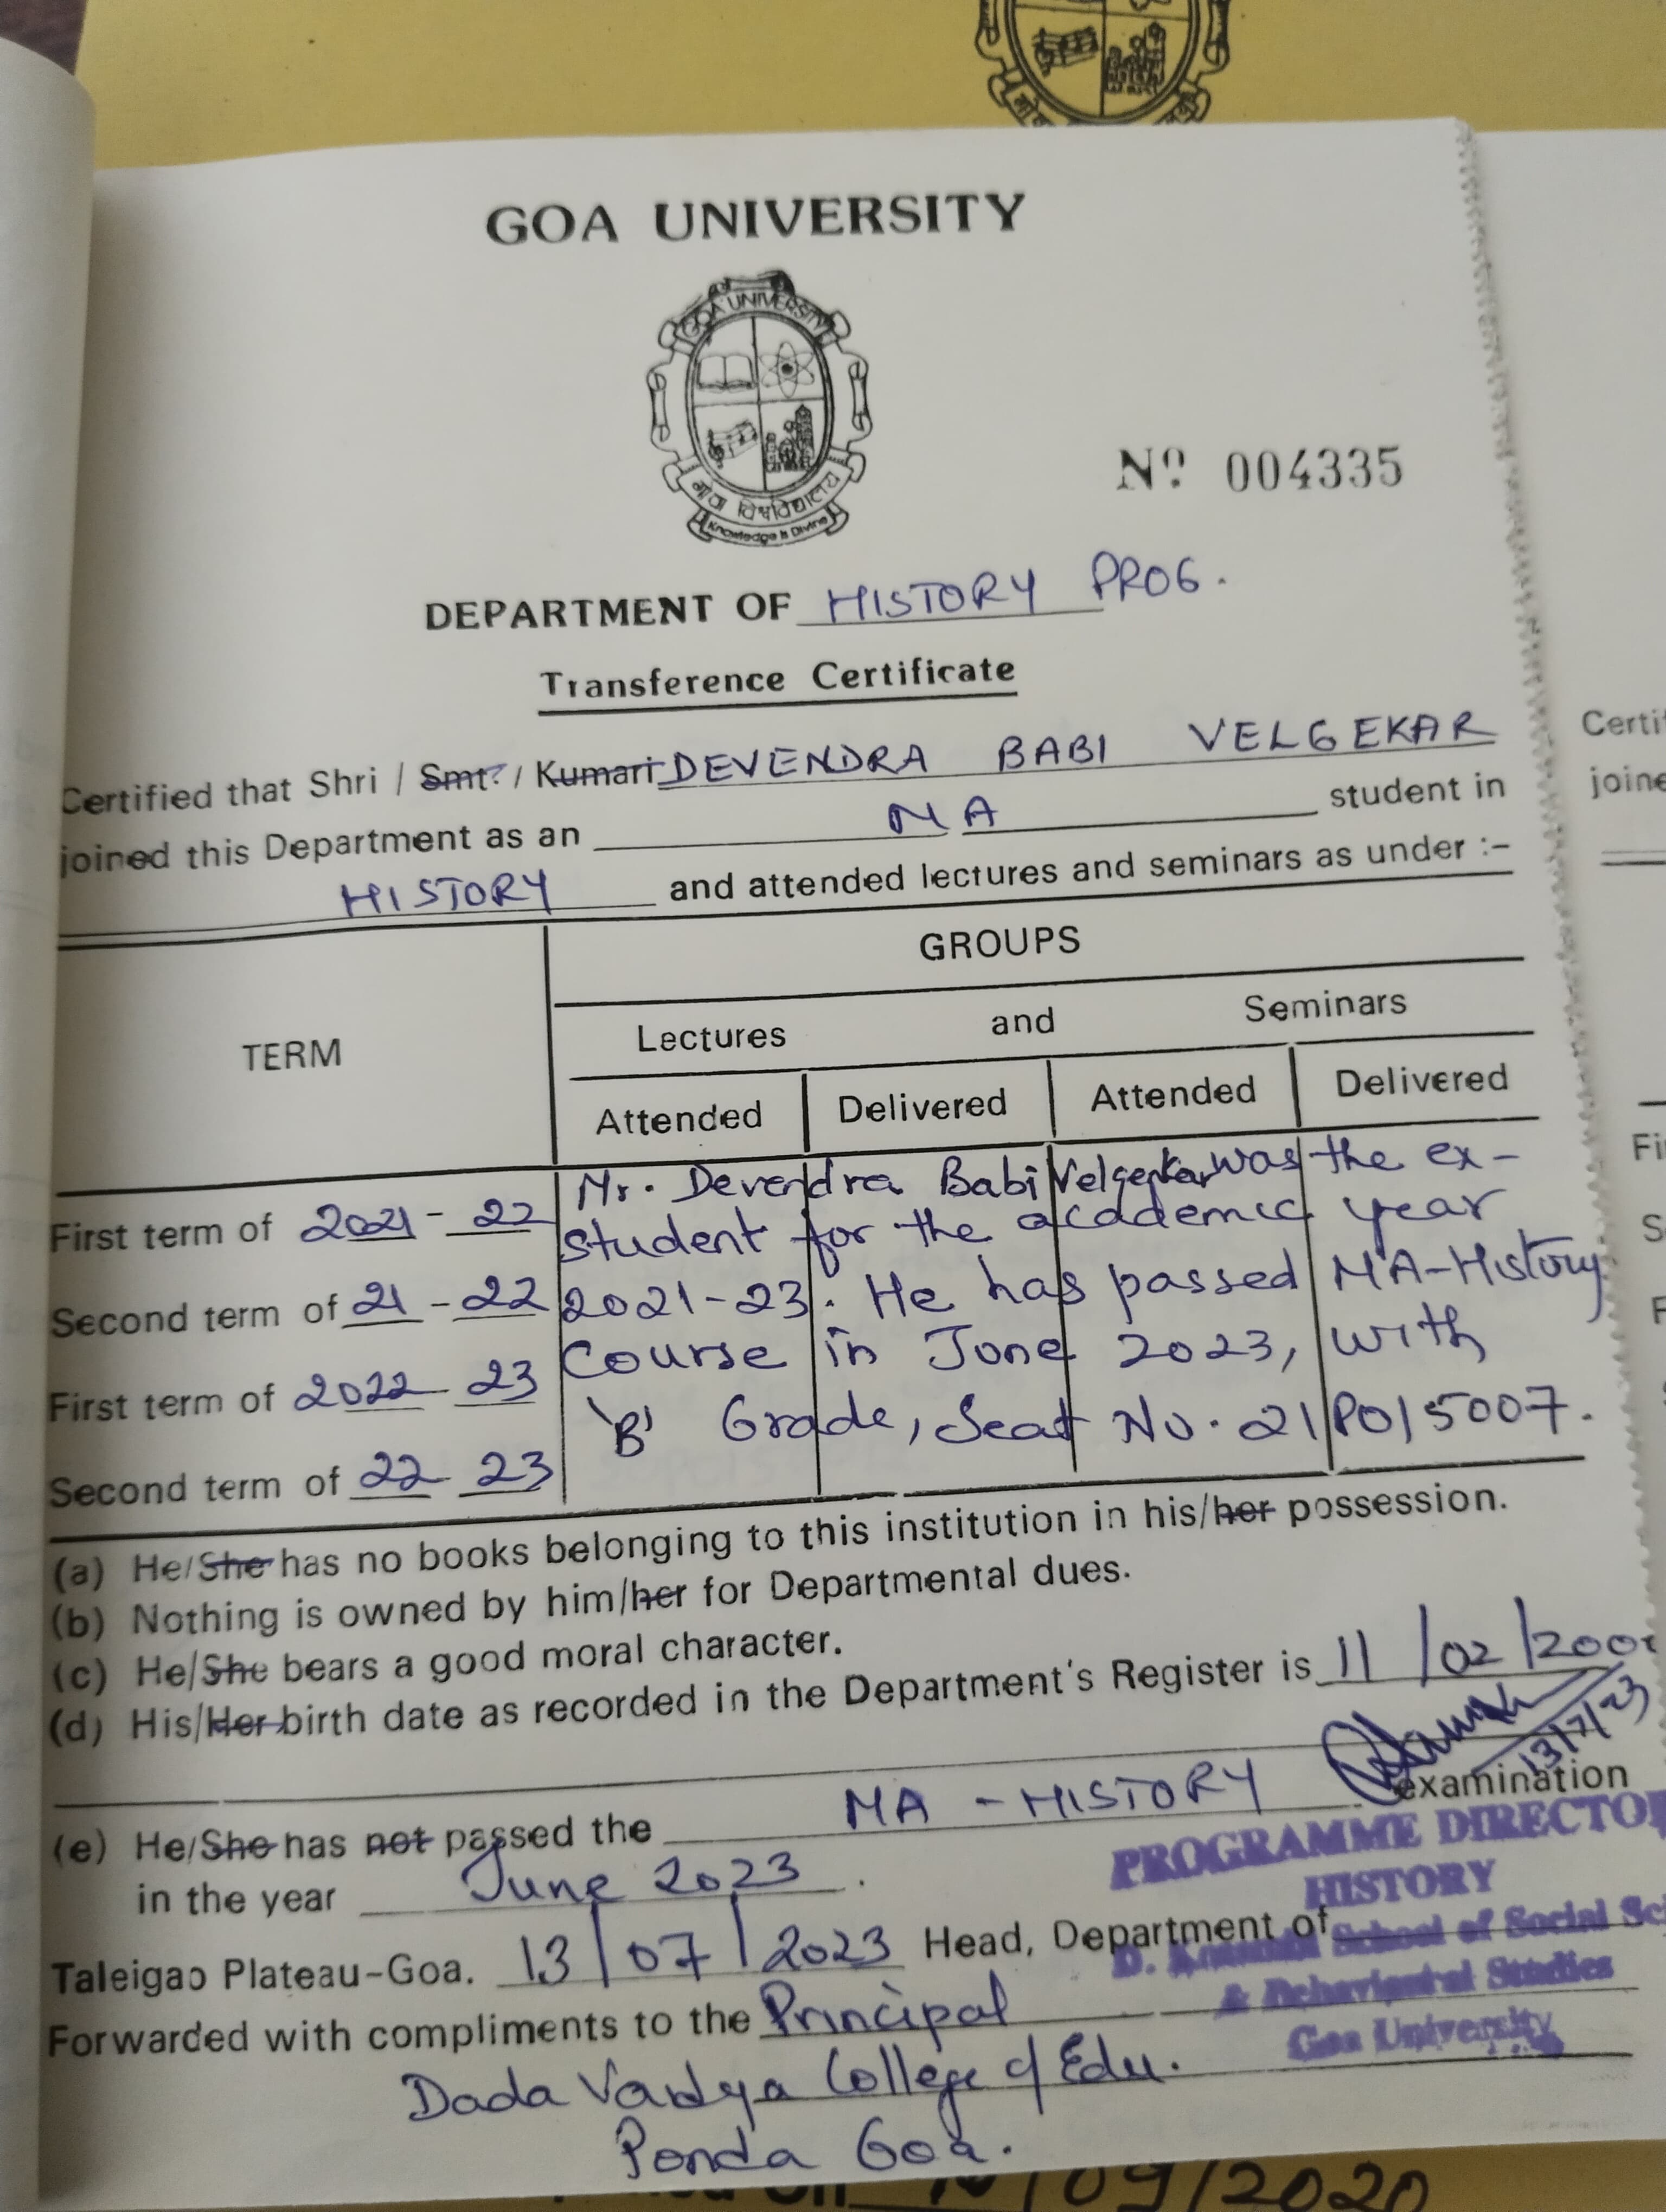 GOA UNIVERSITY
GOA UNIVERSITY
गोवा विश्वविद्यालय
Knowledge is Divine
Nº 004335
DEPARTMENT OF HISTORY PROG.
Transference Certificate
Certified that Shri / Smt. / Kumari DEVENDRA BABI VELGEKAR
joined this Department as an MA student in
HISTORY and attended lectures and seminars as under :-
TERM
GROUPS
Lectures and Seminars
Attended Delivered Attended Delivered
First term of 2021-22
Second term of 21-22
First term of 2022-23
Second term of 22 23
Mr. Devendra Babi Velgekar was the ex-
student for the academic year
2021-23. He has passed MA-History
Course in June 2023, with
'B' Grade, Seat No. 21PO15007.
(a) He/She has no books belonging to this institution in his/her possession.
(b) Nothing is owned by him/her for Departmental dues.
(c) He/She bears a good moral character.
(d) His/Her birth date as recorded in the Department's Register is 11/02/200
13/7/23
(e) He/She has not passed the MA - HISTORY examination
in the year June 2023.
PROGRAMME DIRECTO
HISTORY
Taleigao Plateau-Goa. 13/07/2023 Head, Department of
D. School of Social Sc
& Behavioural Studies
Goa University
Forwarded with compliments to the Principal
Dada Vaidya College of Edu.
Ponda Goa.
Certi
joine
Fi
S
F
/09/2020